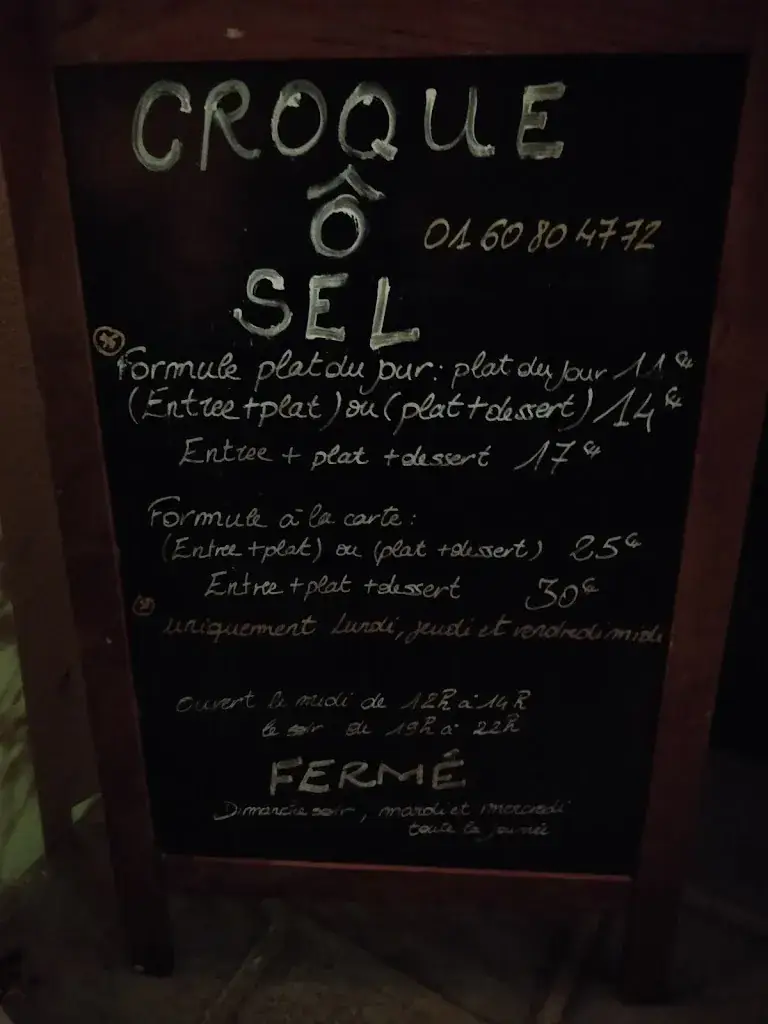 CROQUE
Ô
SEL
01 60 80 47 72
Formule plat du jour : plat du jour 11€
(Entree + plat) ou (plat + dessert) 14€
Entree + plat + dessert 17€
Formule à la carte :
(Entree + plat) ou (plat + dessert) 25€
Entree + plat + dessert 30€
uniquement Lundi, jeudi et vendredi midi
ouvert le midi de 12h à 14h
le soir de 19h à 22h
FERMÉ
Dimanche soir, mardi et mercredi
toute la journée